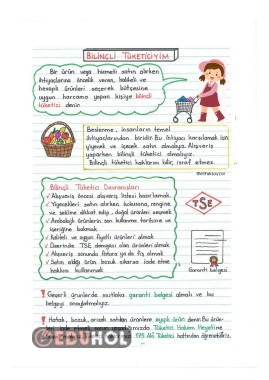 BİLİNÇLİ TÜKETİCİYİM
Bir ürün veya hizmeti satın alırken
ihtiyaçlarına öncelik veren, kaliteli ve
hesaplı ürünleri seçerek bütçesine
uygun harcama yapan kişiye bilinçli
tüketici denir.
Beslenme, insanların temel
ihtiyaçlarından biridir. Bu ihtiyacı karşılamak için
yiyecek ve içecek satın almalıyız. Alışveriş
yaparken bilinçli tüketici olmalıyız.
Bilinçli tüketici haklarını bilir, israf etmez.
Bilinçli Tüketici Davranışları
✓ Alışveriş öncesi alışveriş listesi hazırlamak.
✓ Yiyecekleri satın alırken kokusuna, rengine
ve şekline dikkat edip, doğal ürünleri seçmek
✓ Ambalajlı ürünlerin son kullanma tarihine ve
içeriğine bakmak
✓ Kaliteli ve uygun fiyatlı ürünleri almak
✓ Üzerinde TSE damgası olan ürünleri almak
✓ Alışveriş sonunda fatura ya da fiş almak
✓ Satın aldığı ürün bozuk çıkarsa iade etme
hakkını kullanmak
TSE
Garanti belgesi
! Geçerli ürünlerde mutlaka garanti belgesi almalı ve bu
belgeyi onaylatmalıyız.
! Hatalı, bozuk, arızalı satılan ürünlere ayıplı ürün denir. Bu ürün-
Tüketici Hakem Heyeti'ne
175 Alo Tüketici hattından öğrenebiliriz.
EDUHOL